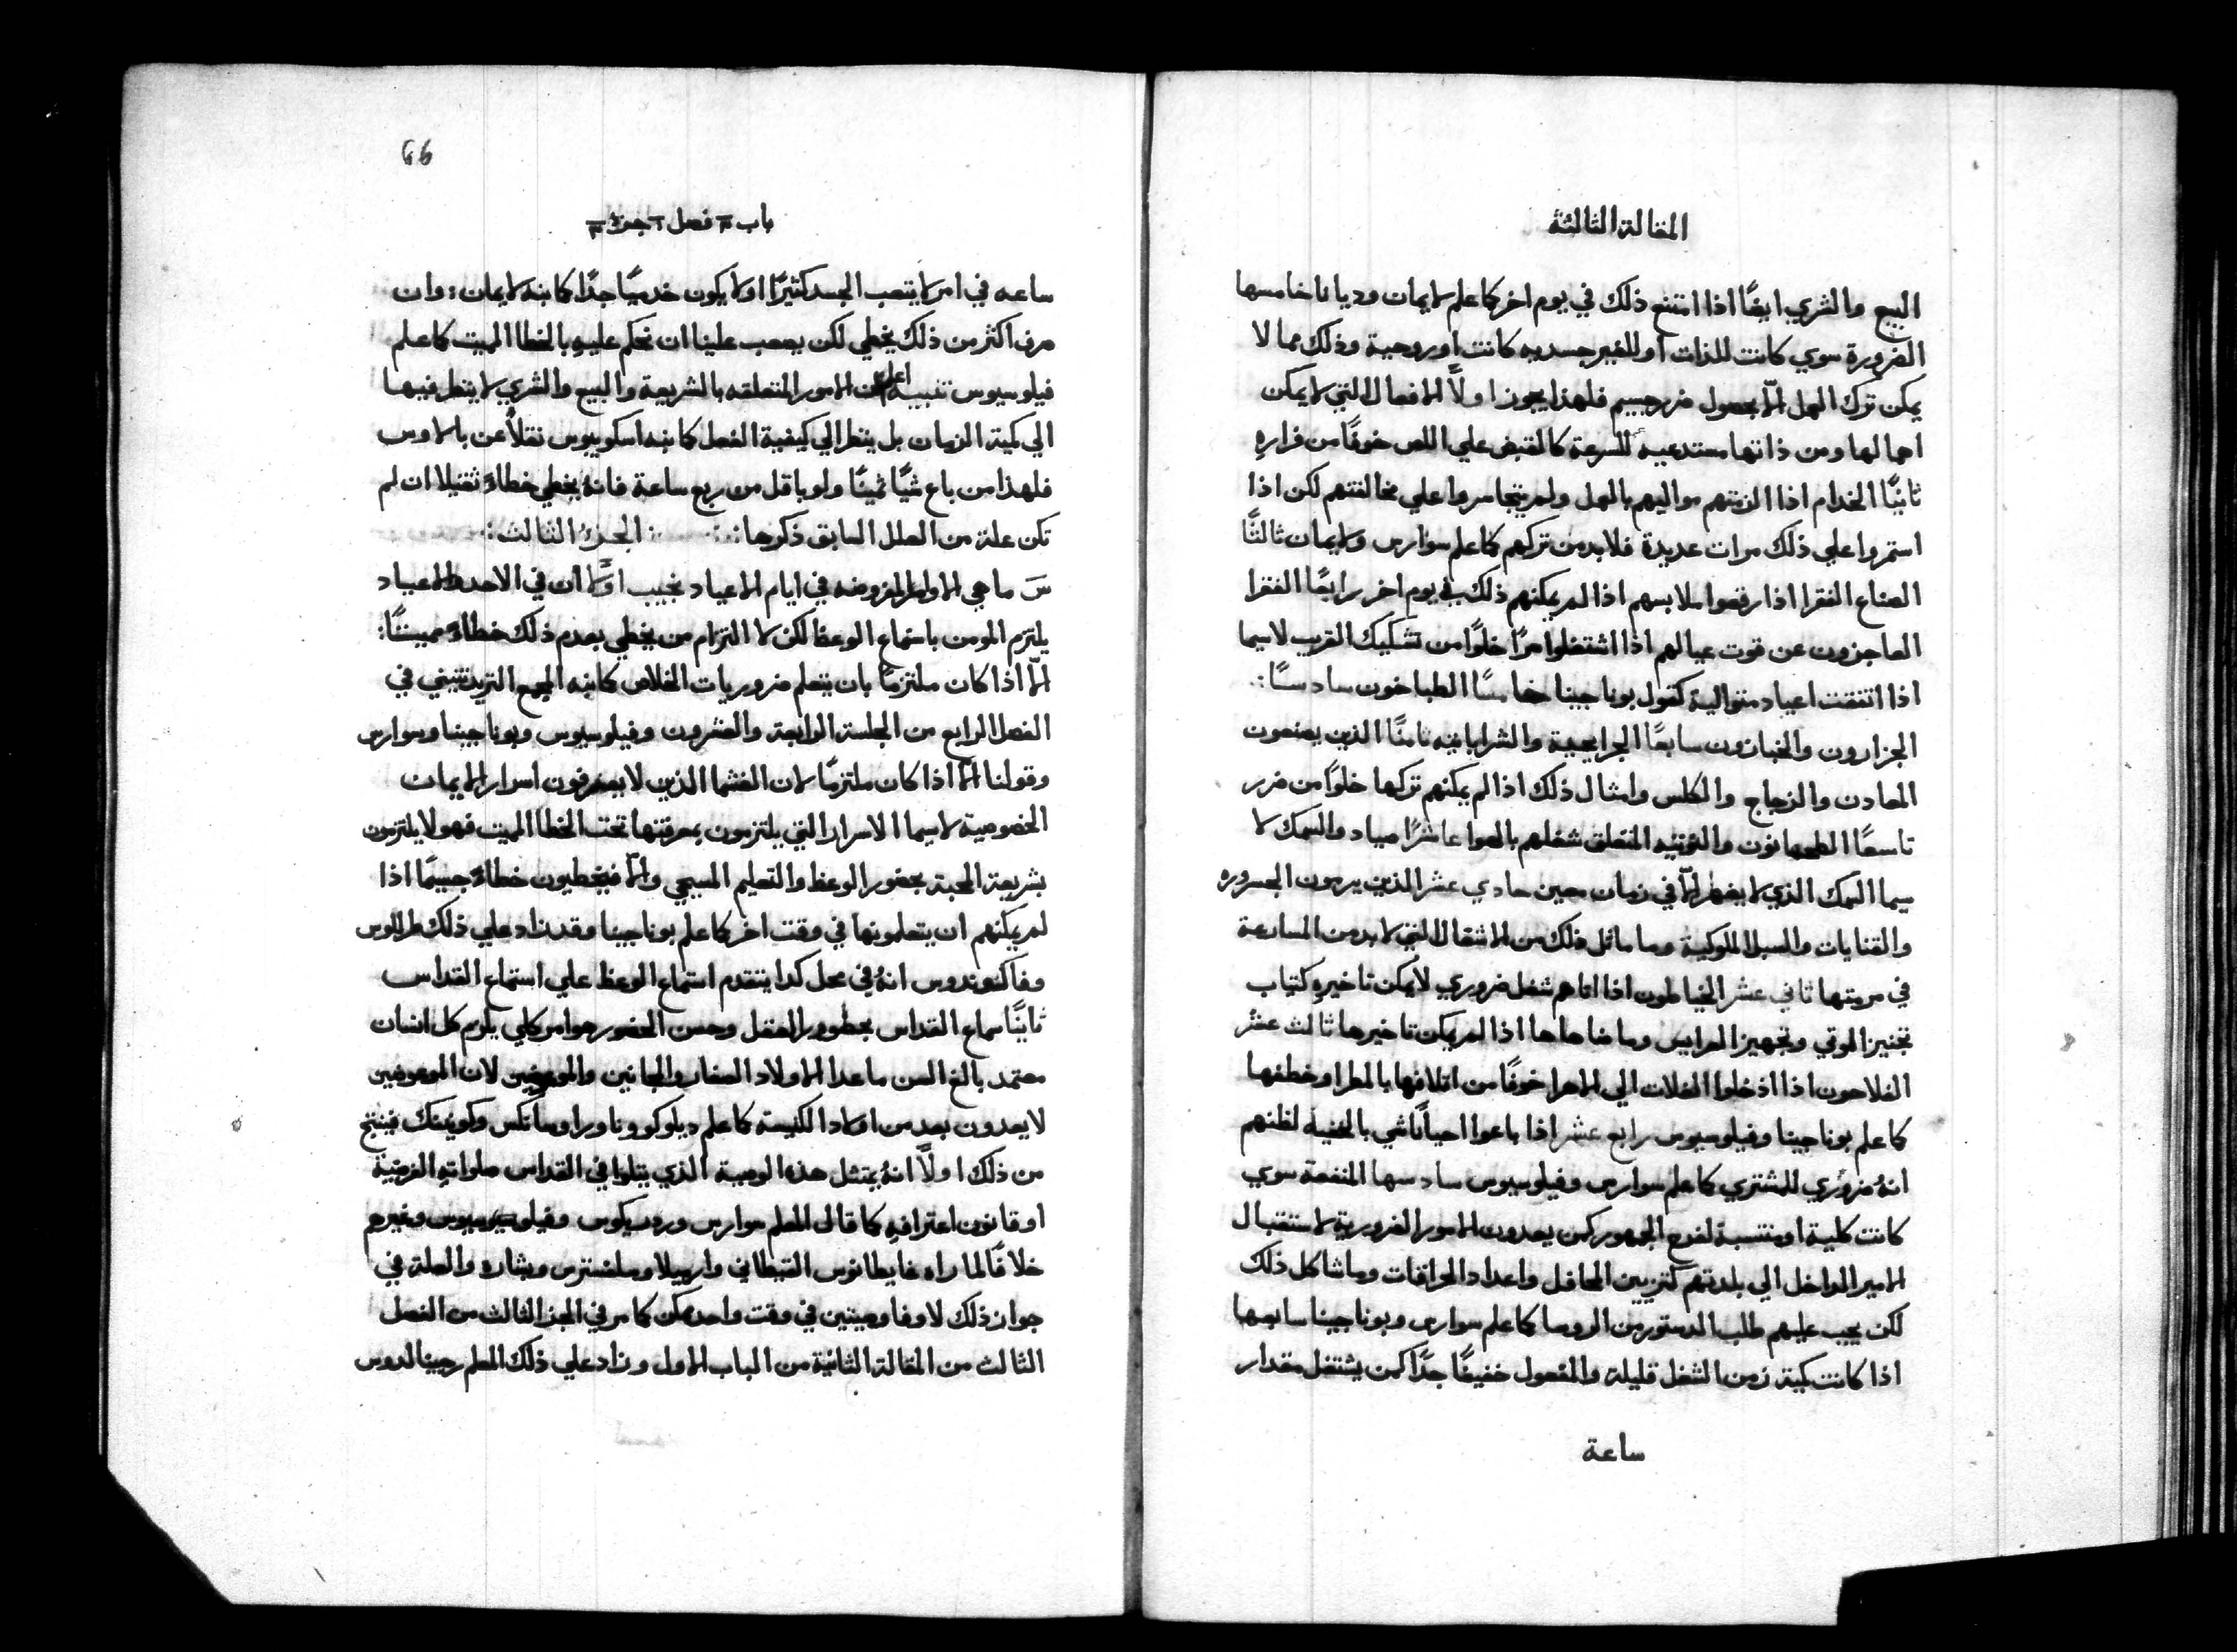 المقالة الثالثة
البيع والشري ايضًا اذا امتنع ذلك في يوم اخر كما علم لايمان وديانا خامسها
الضرورة سوي كانت للذات او للغير جسديه كانت او روحية وذلك مما لا
يمكن ترك العمل الّا بحصول ضرر جسيم فلهذا يجوز اولًا الافعال التي لا يمكن
اهمالها ومن ذاتها مستدعيه للسرعة كالقبض علي اللص خوفًا من فراره
ثانيًا الخدام اذا الزمتهم مواليهم بالعمل ولم يتجاسروا علي مخالفتهم لكن اذا
استمروا علي ذلك مرات عديدة فلا بد من تركهم كما علم سوارس ولايمان ثالثًا
الصناع الفقرا اذا رقعوا ملابسهم اذا لم يمكنهم ذلك في يوم اخر رابعًا الفقرا
العاجزون عن قوت عيالهم اذا اشتغلوا سرًا خلوًا من تشكيك القريب لاسيما
اذا اتفقت اعياد متوالية كقول بوناجينا خامسًا الطباخون سادسًا
الجزارون والخبازون سابعًا الجرايحية والشراباتيه ثامنًا الذين يصنعون
المعادن والزجاج والكلس وامثال ذلك اذا لم يمكنهم تركها خلوًا من ضرر
تاسعًا الطحانون والنوتيه المتعلق شغلهم بالهوا عاشرًا صيادو السمك لا
سيما السمك الذي لا يظهر الّا في زمان معين حادي عشر الذين يرمون الجسوره
والقنايات والسبل الملوكية وما ماثل ذلك من الاشغال التي لا بد من المسارعة
في مرمتها ثاني عشر الخياطون اذا اتاهم شغل ضروري لا يمكن تاخيره كثياب
تجنيز الموتي وتجهيز العرايس وما ضاهاها اذا لم يمكن تاخيرها ثالث عشر
الفلاحون اذا ادخلوا الغلات الي الاهرا خوفًا من اتلافها بالمطر او خطفها
كما علم بوناجينا وفيلوسيوس رابع عشر اذا باعوا احيانًا شي بالخفية لظنهم
انهُ ضروري للمشتري كما علم سوارس وفيلوسيوس سادسها المنفعة سوي
كانت كلية او منتسبة لفرح الجمهور كمن يعدون الامور الضرورية لاستقبال
الامير الداخل الي بلدتهم كتزيين المحافل واعداد الحراقات وما شاكل ذلك
لكن يجب عليهم طلب الدستور من الروسا كما علم سوارس وبوناجينا سابعها
اذا كانت كمية زمن الشغل قليلة والمفعول خفيفًا جدًا كمن يشتغل مقدار
ساعة
66
باب ٣ فصل ٢ جزء ٣
ساعه في امر لا يتعب الجسد كثيرًا او لا يكون خدميًا جدًا كما نبه لايمان: وان
صرف اكثر من ذلك يخطي لكن يصعب علينا ان نحكم عليه بالخطا المميت كما علم
فيلوسيوس تنبيه اعلم ان الامور المتعلقه بالشريعة والبيع والشري لا ينظر فيها
الي كمية الزمان بل ينظر الي كيفية الفعل كما نبه اسكوبيوس نقلًا عن بالاوس
فلهذا من باع شيًا ثمينًا ولو باقل من ربع ساعة فانهُ يخطي خطاءً ثقيلا ان لم
تكن علة من العلل السابق ذكرها: الجزء الثالث
سَ ما هي الاوامر المفروضه في ايام الاعياد نجيب اولًا ان في الاحد والاعياد
يلتزم المومن باستماع الوعظ لكن لا التزام من يخطي بعدم ذلك خطاءً مميتًا:
الّا اذا كان ملتزمًا بان يتعلم ضروريات الخلاص كما نبه المجمع التريدنتيني في
الفصل الرابع من الجلسة الرابعة والعشرون وفيلوسيوس وبوناجينا وسوارس
وقولنا الّا اذا كان ملتزمًا لان الغشما الذين لا يعرفون اسرار الايمان
الخصوصية لاسيما الاسرار التي يلتزمون بمعرفتها تحت الخطا المميت فهولا يلتزمون
بشريعة المحبة بحضور الوعظ والتعليم المسيحي والّا فيخطيون خطاءً جسيمًا اذا
لم يمكنهم ان يتعلمونها في وقت اخر كما علم بوناجينا وقد زاد علي ذلك طراللوس
وفاكنوندوس انهُ في محل كدا يتقدم استماع الوعظ علي استماع القداس
ثانيًا سماع القداس بحضور العقل وحسن الحضور هو امر كلي يلزم كل انسان
معتمد بالغ السن ما عدا الاولاد الصغار والمجانين والموعوظين لان الموعوظين
لا يعدون بعد من اولاد الكنيسه كما علم ديلوكو وناورا وساتكس وكونينك فينتج
من ذلك اولًا انهُ يمتثل هذه الوصية الذي يتلوا في القداس صلواتهِ الفرضية
او قانون اعترافهِ كما قال المعلم سوارس ورودريكوس وفيلوسيوس وغيرهم
خلافًا لما راه غايطانوس القبطاني واربيلا وسلفسترس وبشاره والعلة في
جواز ذلك لان وفا وصيتين في وقت واحد ممكن كما مر في الجز الثالث من الفصل
الثالث من المقالة الثانية من الباب الاول وزاد علي ذلك المعلم رجينالدوس